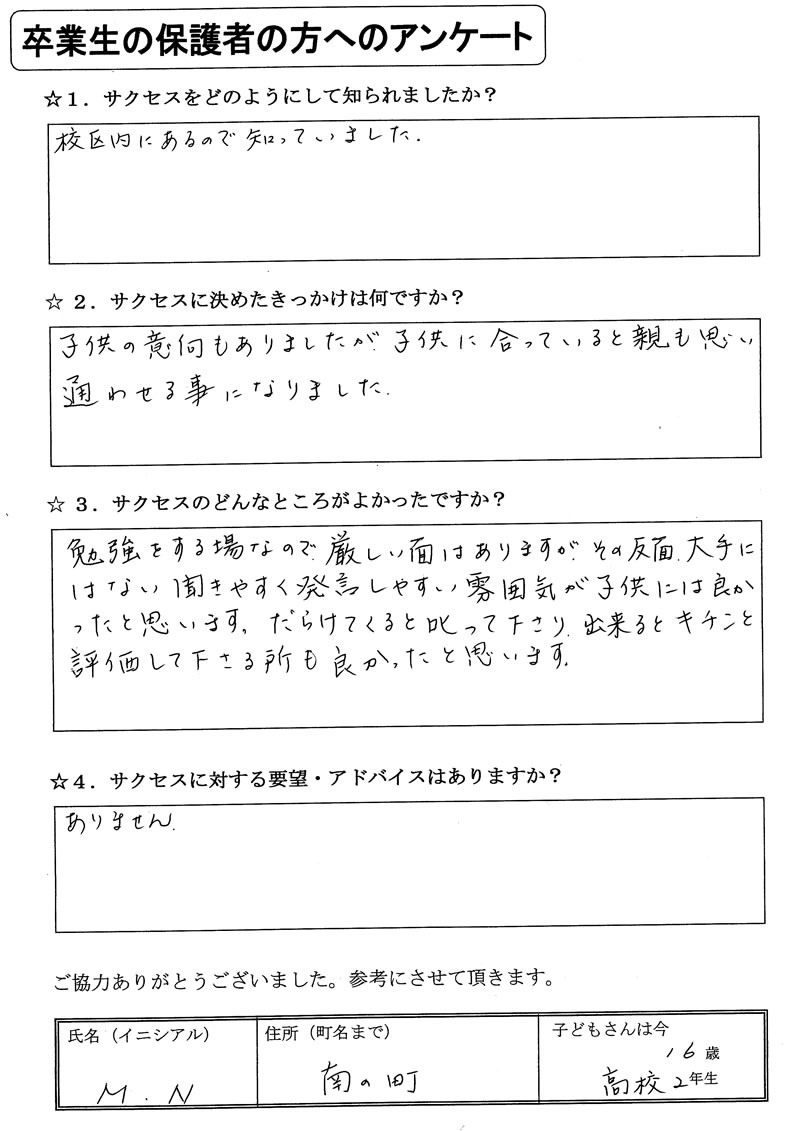 卒業生の保護者の方へのアンケート
☆１．サクセスをどのようにして知られましたか？
校区内にあるので知っていました.
☆ ２．サクセスに決めたきっかけは何ですか？
子供の意向もありましたが子供に合っていると親も思い
通わせる事になりました.
☆ ３．サクセスのどんなところがよかったですか？
勉強をする場なので、厳しい面はありますが、その反面、大手に
はない聞きやすく発言しやすい雰囲気が子供には良か
ったと思います。だらけてくると叱って下さり、出来るとキチンと
評価して下さる所も良かったと思います。
☆４．サクセスに対する要望・アドバイスはありますか？
ありません.
ご協力ありがとうございました。参考にさせて頂きます。
氏名（イニシアル） 住所（町名まで） 子どもさんは今
16歳
M.N 南の町 高校2年生